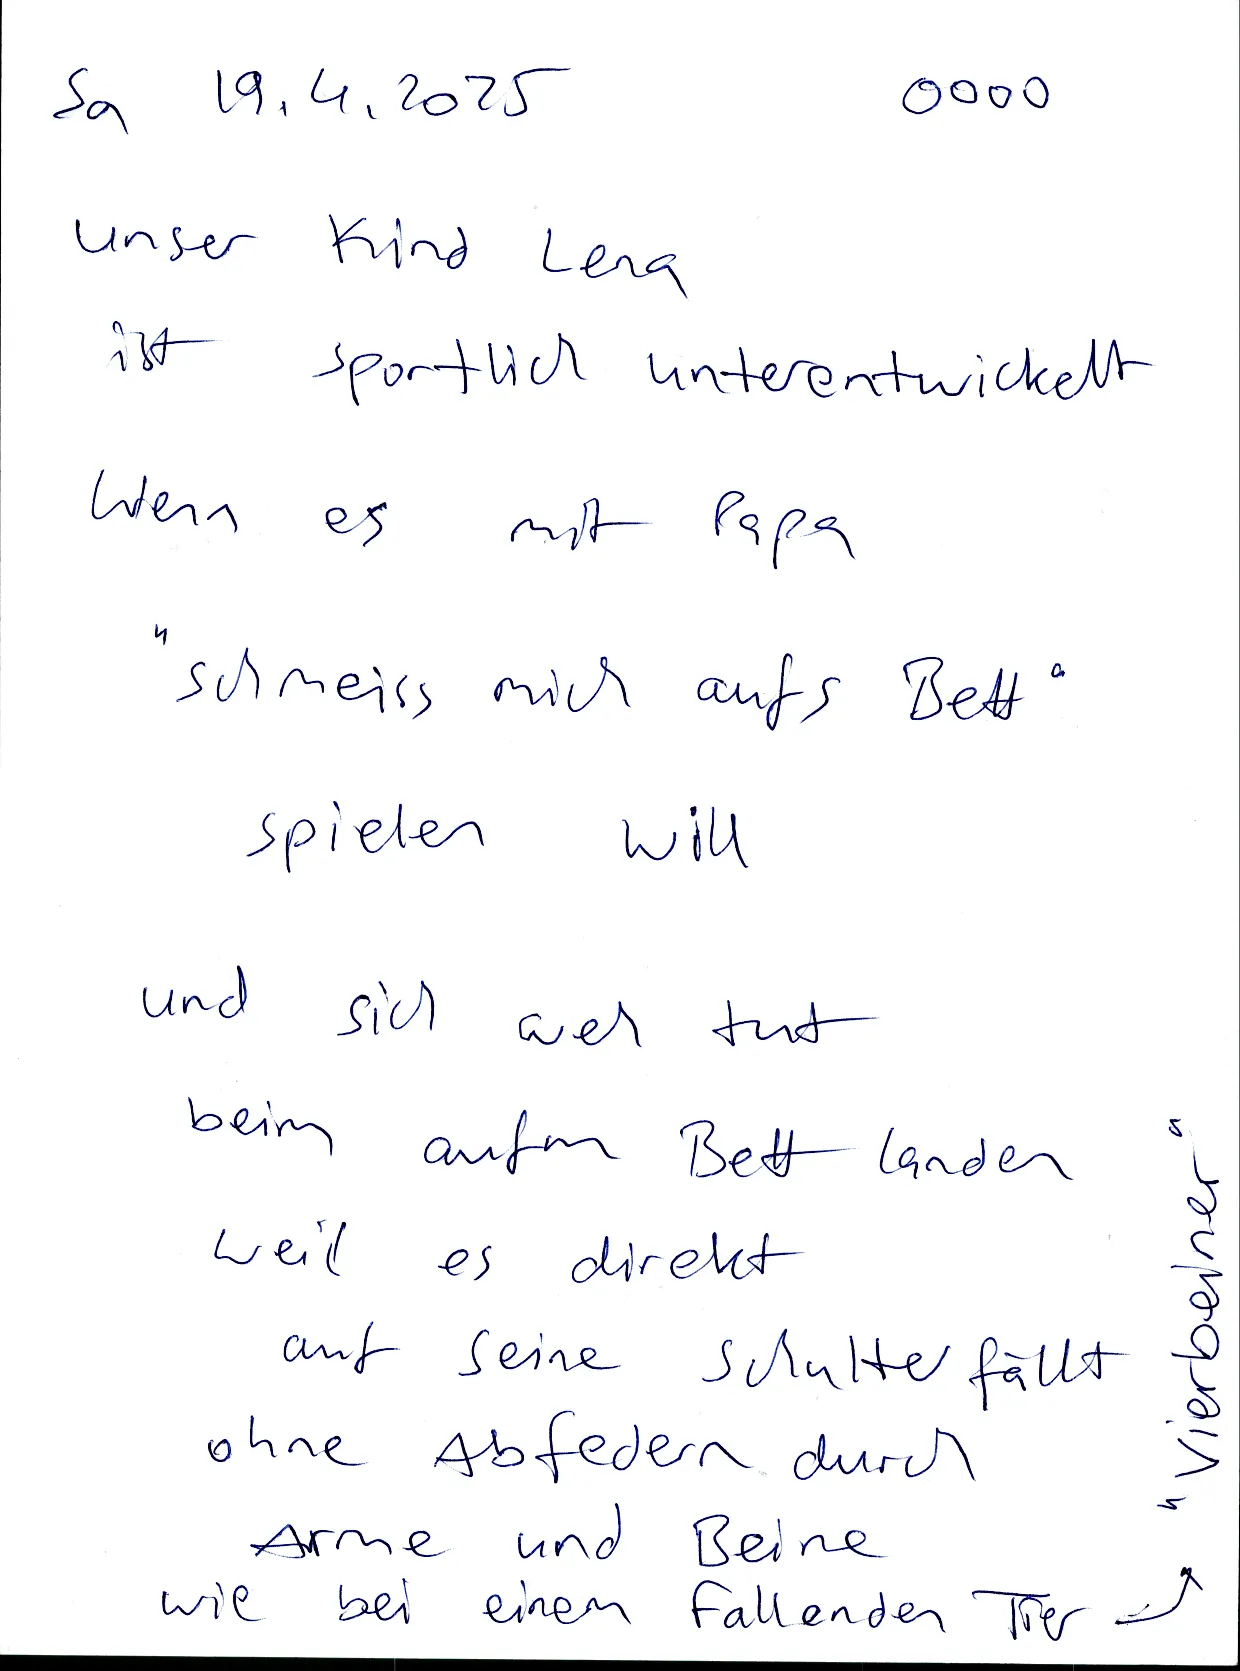 Sa 19.4.2025 0000
unser Kind Lena
ist sportlich unterentwickelt
wenn es mit Papa
"schmeiss mich aufs Bett"
spielen will
und sich weh tut
beim aufm Bett landen
weil es direkt
auf seine Schulter fällt
ohne Abfedern durch
Arme und Beine
wie bei einem fallenden Tier
"Vierbeiner"